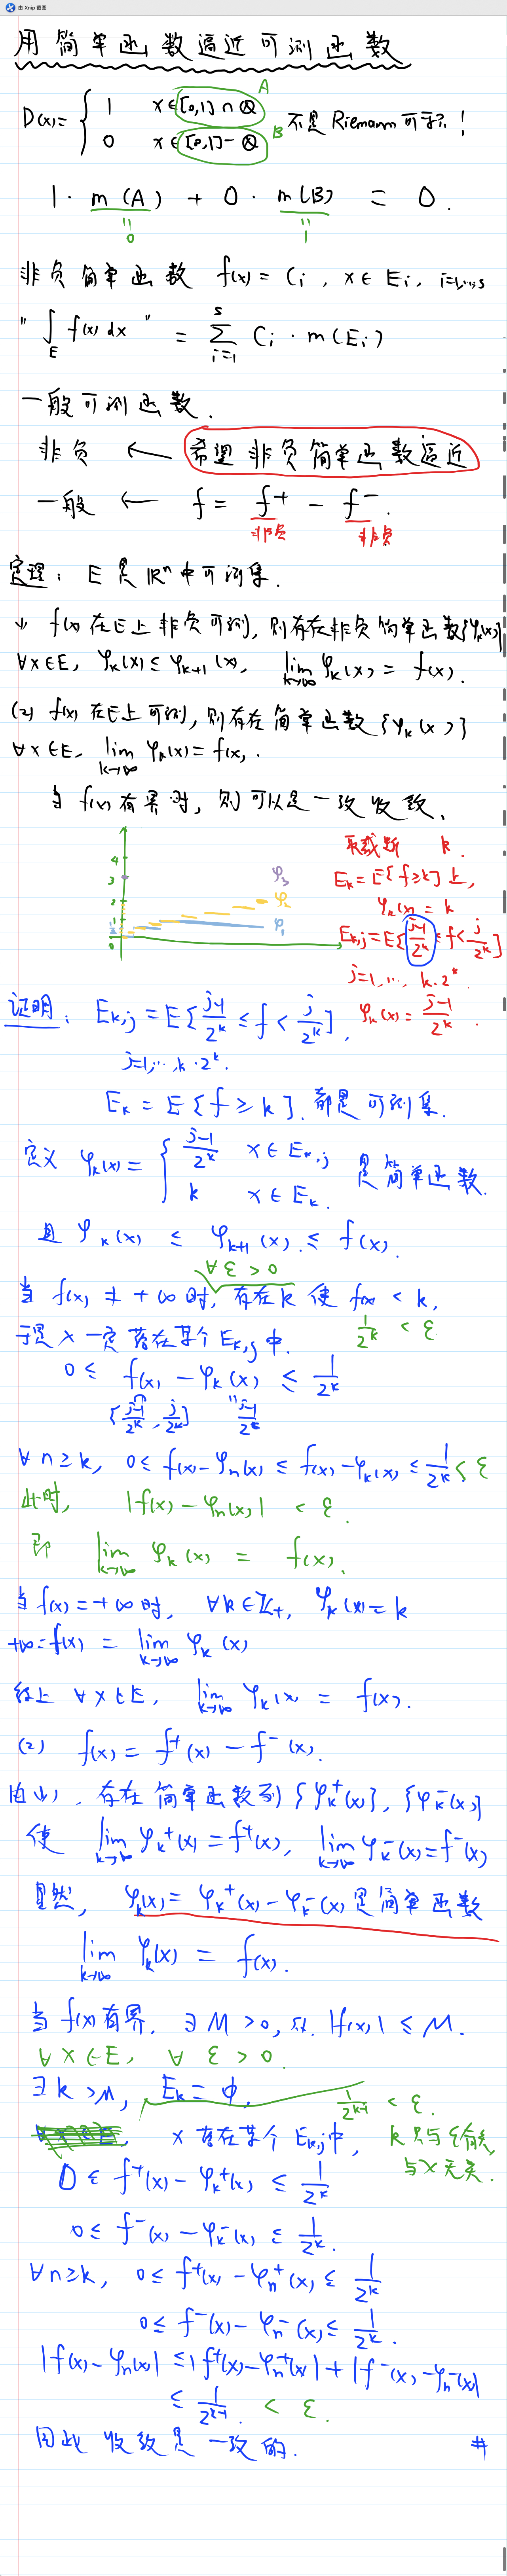 由 Xnip 截图
用简单函数逼近可测函数
D(x)= { 1 x∈[0,1]∩Q A
0 x∈[0,1]-Q B 不是 Riemann 可积!
1·m(A) + 0·m(B) = 0.
"0 "1
非负简单函数 f(x)=Ci, x∈Ei, i=1,...,s
"∫_E f(x)dx" = ∑_{i=1}^{s} Ci·m(Ei)
一般可测函数.
非负 ← 希望非负简单函数逼近
一般 ← f = f⁺ - f⁻.
非负 非负
定理: E是ℝⁿ中可测集.
(1) f(x)在E上非负可测,则有存在非负简单函数{φk(x)}
∀x∈E, φk(x)≤φk+1(x), lim_{k→∞} φk(x)=f(x).
(2) f(x)在E上可测,则存在简单函数{φk(x)}
∀x∈E, lim_{k→∞} φk(x)=f(x).
当f(x)有界时,则可以是一致收敛.
4
3
2
1
0
φ3
φ2
φ1
取截断 k.
Ek=E{f≥k}上,
φk(x)=k
Ek,j=E{(j-1)/2^k ≤f< j/2^k}
j=1,...,k·2^k
φk(x)=(j-1)/2^k.
证明: Ek,j=E{(j-1)/2^k ≤ f < j/2^k},
j=1,...,k·2^k.
Ek=E{f≥k}. 都是可测集.
定义 φk(x)= { (j-1)/2^k x∈Ek,j
k x∈Ek. 是简单函数.
且 φk(x) ≤ φk+1(x) ≤ f(x).
∀ε>0
当f(x)≠+∞时,存在k使f(x)<k,
1/2^k < ε
于是x一定落在某个Ek,j中.
0≤ f(x)-φk(x) ≤ 1/2^k
[(j-1)/2^k, j/2^k] "(j-1)/2^k
∀n≥k, 0≤f(x)-φn(x)≤f(x)-φk(x)≤1/2^k<ε
此时, |f(x)-φn(x)| < ε.
即 lim_{k→∞} φk(x) = f(x).
当f(x)=+∞时, ∀k∈ℤ₊, φk(x)=k
+∞=f(x) = lim_{k→∞} φk(x)
综上 ∀x∈E, lim_{k→∞} φk(x) = f(x).
(2) f(x)=f⁺(x)-f⁻(x).
由(1),存在简单函数列{φk⁺(x)},{φk⁻(x)}
使 lim_{k→∞} φk⁺(x)=f⁺(x), lim_{k→∞} φk⁻(x)=f⁻(x)
显然, φk(x)=φk⁺(x)-φk⁻(x)是简单函数
lim_{k→∞} φk(x) = f(x).
当f(x)有界, ∃M>0, s.t. |f(x)|≤M.
∀x∈E, ∀ε>0.
∃k>M, Ek=∅, 1/2^{k-1} < ε.
x落在某个Ek,j中, k只与ε有关,
与x无关.
0≤f⁺(x)-φk⁺(x)≤1/2^k
0≤f⁻(x)-φk⁻(x)≤1/2^k.
∀n≥k, 0≤f⁺(x)-φn⁺(x)≤1/2^k
0≤f⁻(x)-φn⁻(x)≤1/2^k.
|f(x)-φn(x)|≤|f⁺(x)-φn⁺(x)|+|f⁻(x)-φn⁻(x)|
≤1/2^{k-1} < ε.
因此收敛是一致的. #